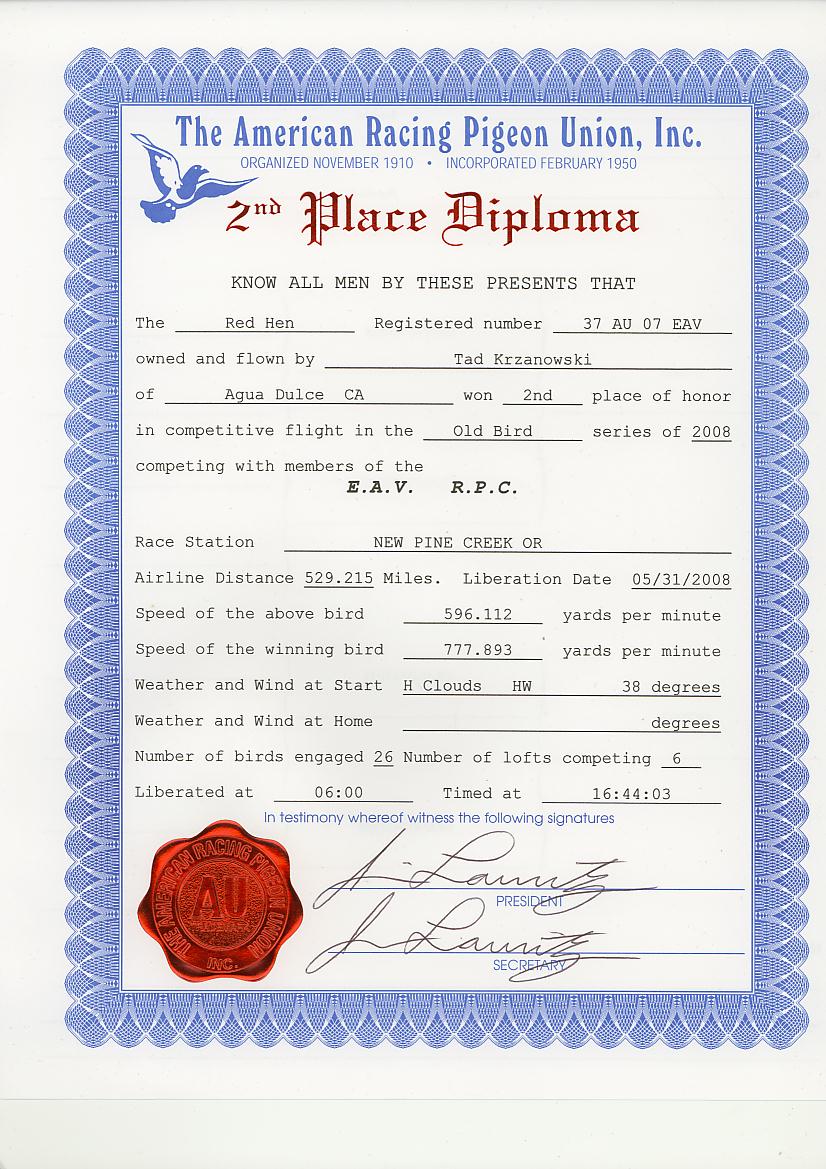 The American Racing Pigeon Union, Inc.
ORGANIZED NOVEMBER 1910 • INCORPORATED FEBRUARY 1950
2nd Place Diploma
KNOW ALL MEN BY THESE PRESENTS THAT
The Red Hen Registered number 37 AU 07 EAV
owned and flown by Tad Krzanowski
of Agua Dulce CA won 2nd place of honor
in competitive flight in the Old Bird series of 2008
competing with members of the
E.A.V. R.P.C.
Race Station NEW PINE CREEK OR
Airline Distance 529.215 Miles. Liberation Date 05/31/2008
Speed of the above bird 596.112 yards per minute
Speed of the winning bird 777.893 yards per minute
Weather and Wind at Start H Clouds HW 38 degrees
Weather and Wind at Home degrees
Number of birds engaged 26 Number of lofts competing 6
Liberated at 06:00 Timed at 16:44:03
In testimony whereof witness the following signatures
PRESIDENT
SECRETARY
THE AMERICAN RACING PIGEON UNION
AU
INC.